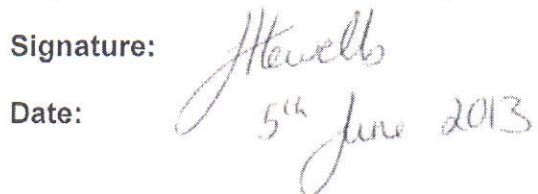 Signature: JHewells
Date: 5th June 2013